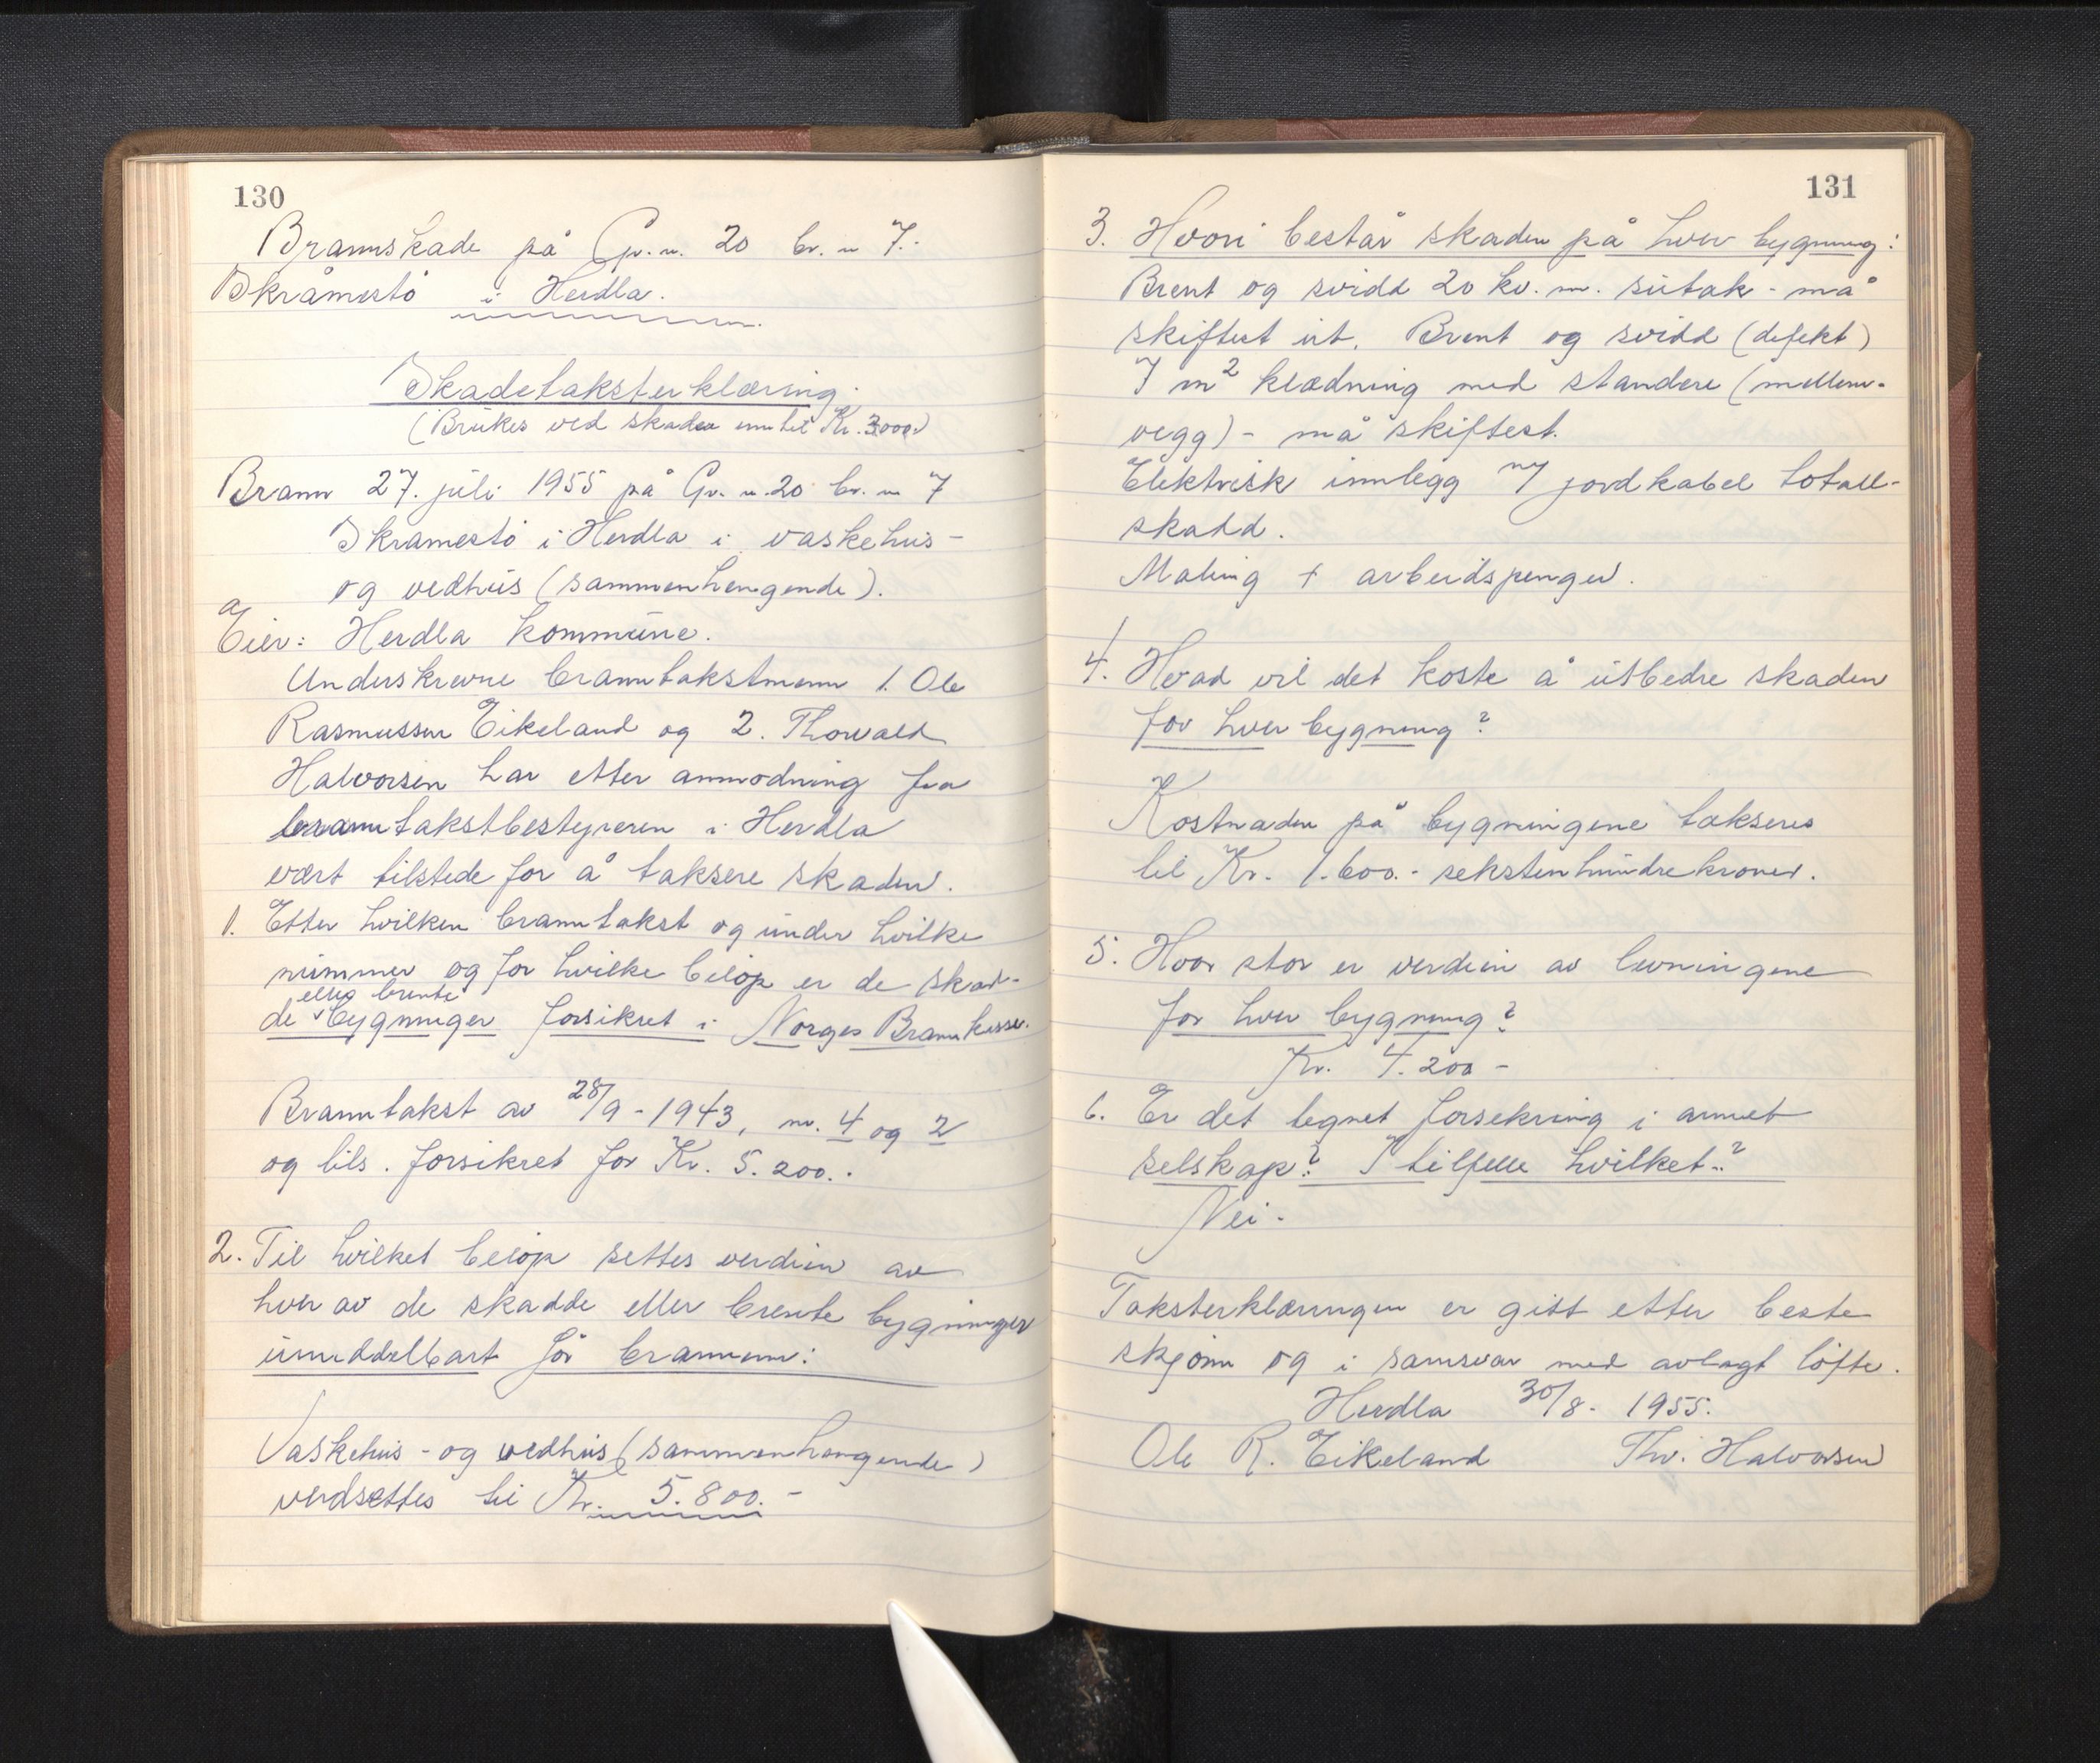 130
Brannskade på Gr. n. 20 br. n 7.
Skråmestö i Herdla.
Skadetaksterklæring.
(Brukes ved skader inntil Kr. 3000.)
Brann 27. juli 1955 på Gr. n. 20 br. n 7
Skramestö i Herdla i vaskehus-
og vedhus (sammenhengende).
Eier: Herdla kommune.
Underskrevne branntakstmenn 1. Ole
Rasmussen Eikeland og 2. Thorvald
Halvorsen har etter anmodning fra
branntakstbestyreren i Herdla
vært tilstede for å taksere skaden.
1. Etter hvilken branntakst og under hvilke
nummer og for hvilke beløp er de skad-
eller brente
de bygninger forsikret i Norges Brannkasse.
Branntakst av 28/9 - 1943, nr. 4 og 2
og tils. forsikret for Kr. 5.200.-
2. Til hvilket beløp settes verdien av
hver av de skadde eller brente bygninger
umiddelbart för brannen:
Vaskehus - og vedhus (sammenhengende)
verdsettes til Kr. 5.800.-
131
3. Hvori består skaden på hver bygning:
Brent og svidd 20 kv. m. sutak - må
skiftest ut. Brent og svidd (defekt)
7 m2 klædning med standere (mellom-
vegg) - må skiftest.
Elektrisk innlegg ny jordkabel totall-
skadd.
Maling + arbeidspenger.
4. Hvad vil det koste å utbedre skaden
for hver bygning?
Kostnaden på bygningene takseres
til Kr. 1.600.- sekstenhundrekroner.
5. Hvor stor er verdien av levningene
for hver bygning?
Kr. 4.200 -
6. Er det tegnet forsekring i annet
selskap? I tilfelle hvilket?
Nei.
Taksterklæringen er gitt etter beste
skjønn og i samsvar med avlagt löfte.
Herdla 30/8. 1955.
Ole R. Eikeland Thv. Halvorsen